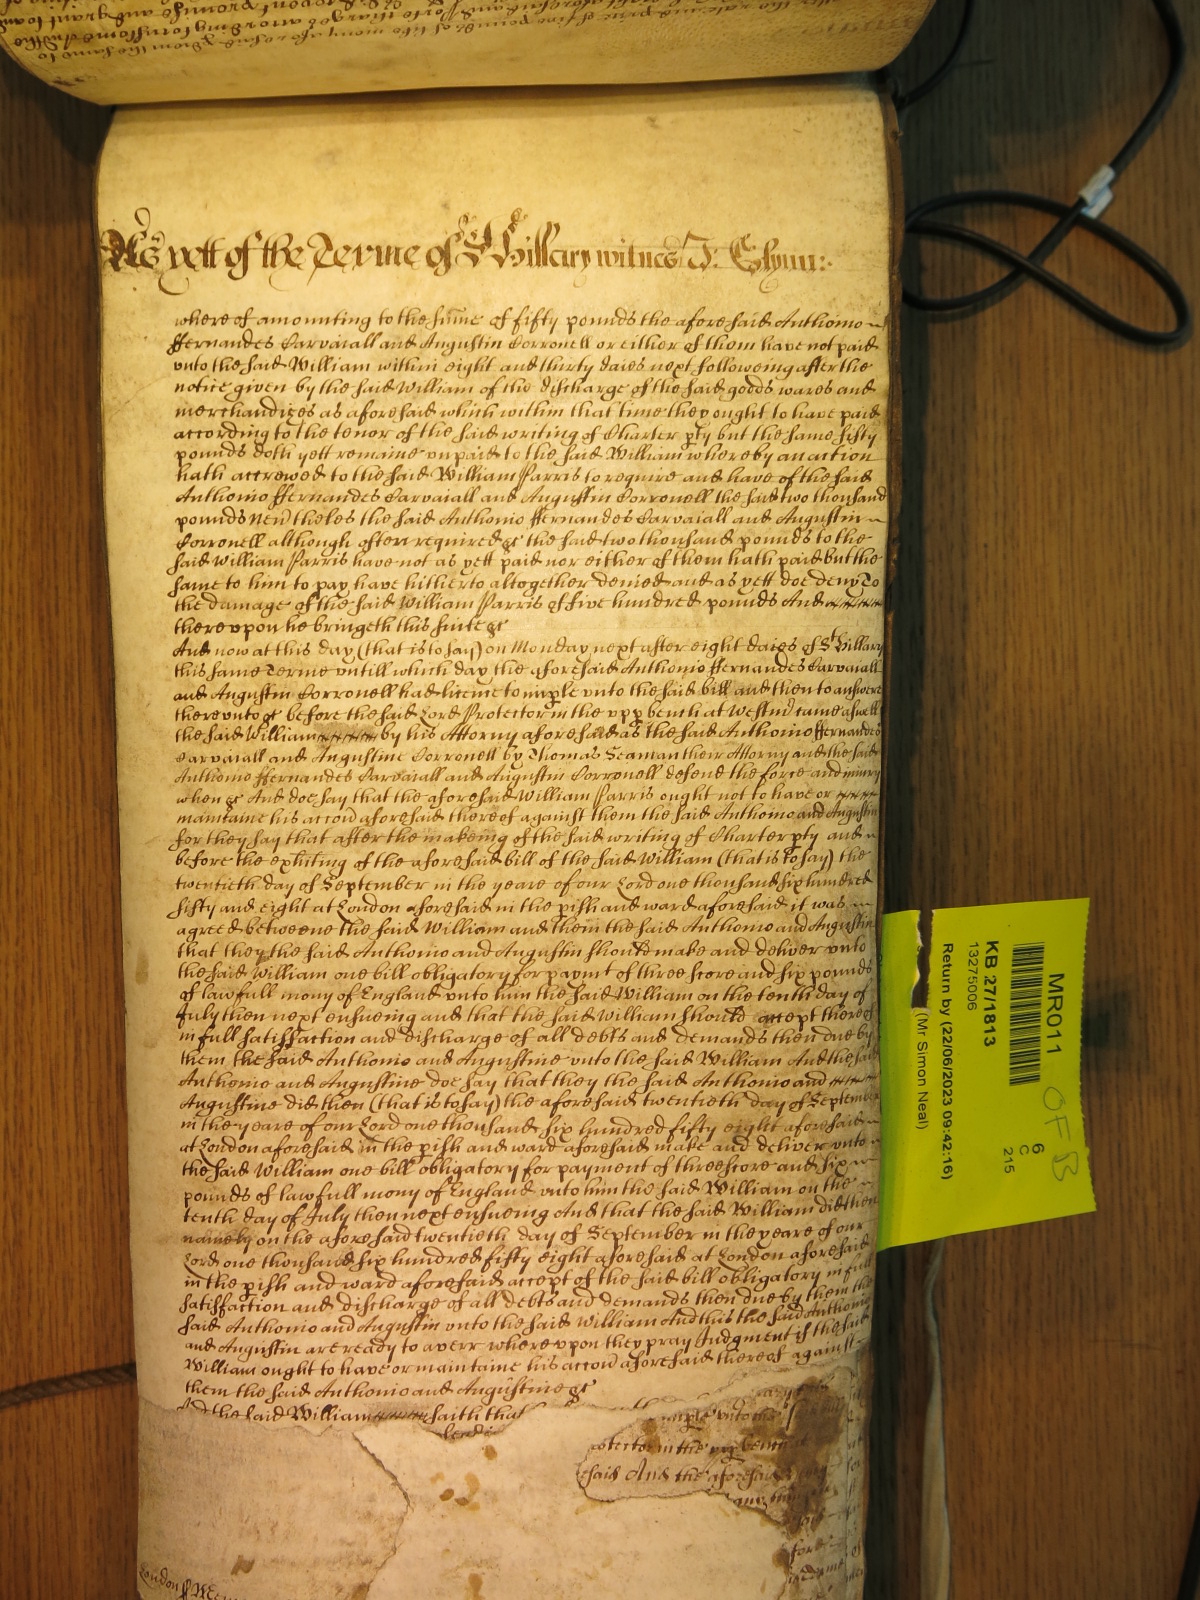 As yett of the Terme of St Hillary witnes J: Glynn:
where of amounting to the sume of fifty pounds the aforesaid Anthonio
ffernandes Carvaiall and Augustin Corronell or either of them have not paid
unto the said William within eight and thirty daies next followeing after the
notice given by the said William of the discharge of the said goods wares and
merchandizes as aforesaid which within that time they ought to have paid
according to the tenor of the said writing of Charter pty but the same fifty
pounds doth yett remaine unpaid to the said William whereby an action
hath accrewed to the said William Parris to require and have of the said
Anthonio ffernandes Carvaiall and Augustin Corronell the said two thousand
pounds Nevtheles the said Anthonio ffernandes Carvaiall and Augustin
Corronell although often required &c the said two thousand pounds to the
said William Parris have not as yett paid nor either of them hath paid but the
same to him to pay have hitherto altogether denied and as yett doe deny To
the damage of the said William Parris of five hundred pounds And
thereupon he bringeth this suite &c
And now at this day (that is to say) on Monday next after eight daies of St Hillary
this same Terme untill which day the aforesaid Anthonio ffernandes Carvaiall
and Augustin Corronell had licence to imple unto the said bill and then to answere
thereunto &c before the said Lord Protector in the upp bench at Westm came aswell
the said William by his Attorny aforesaid as the said Anthonio ffernandes
Carvaiall and Augustine Corronell by Thomas Seaman their Attorny and the said
Anthonio ffernandes Carvaiall and Augustin Corronell defend the force and iniury
when &c And doe say that the aforesaid William Parris ought not to have or
maintaine his accon aforesaid thereof against them the said Anthonio and Augustin
for they say that after the makeing of the said writing of Charter pty and
before the exhiting of the aforesaid bill of the said William (that is to say) the
twentieth day of September in the yeare of our Lord one thousand six hundred
fifty and eight at London aforesaid in the pish and ward aforesaid it was
agreed betweene the said William and them the said Anthonio and Augustin
that they the said Anthonio and Augustin should make and deliver unto
the said William one bill obligatory for paymt of three score and six pounds
of lawfull mony of England unto him the said William on the tenth day of
July then next ensueing and that the said William should accept thereof
in full satisfaction and discharge of all debts and demands then due by
them the said Anthonio and Augustine unto the said William And the said
Anthonio and Augustine doe say that they the said Anthonio and
Augustine did then (that is to say) the aforesaid twentieth day of September
in the yeare of our Lord one thousand six hundred fifty eight aforesaid
at London aforesaid in the pish and ward aforesaid make and deliver unto
the said William one bill obligatory for payment of threescore and six
pounds of lawfull mony of England unto him the said William on the
tenth day of July then next ensueing And that the said William did then
namely on the aforesaid twentieth day of September in the yeare of our
Lord one thousand six hundred fifty eight aforesaid at London aforesaid
in the pish and ward aforesaid accept of the said bill obligatory in full
satisfaction and discharge of all debts and demands then due by them the
said Anthonio and Augustin unto the said William And this the said Anthonio
and Augustin are ready to averr whereupon they pray Judgment if the said
William ought to have or maintaine his accon aforesaid thereof against
them the said Anthonio and Augustine &c
And the said William saith that
imple unto the
otector in the upp bench
said And the aforesaid
London
MR011
OF B
6
C
215
KB 27/1813
13275006
Return by (22/06/2023 09:42:16)
(Mr Simon Neal)